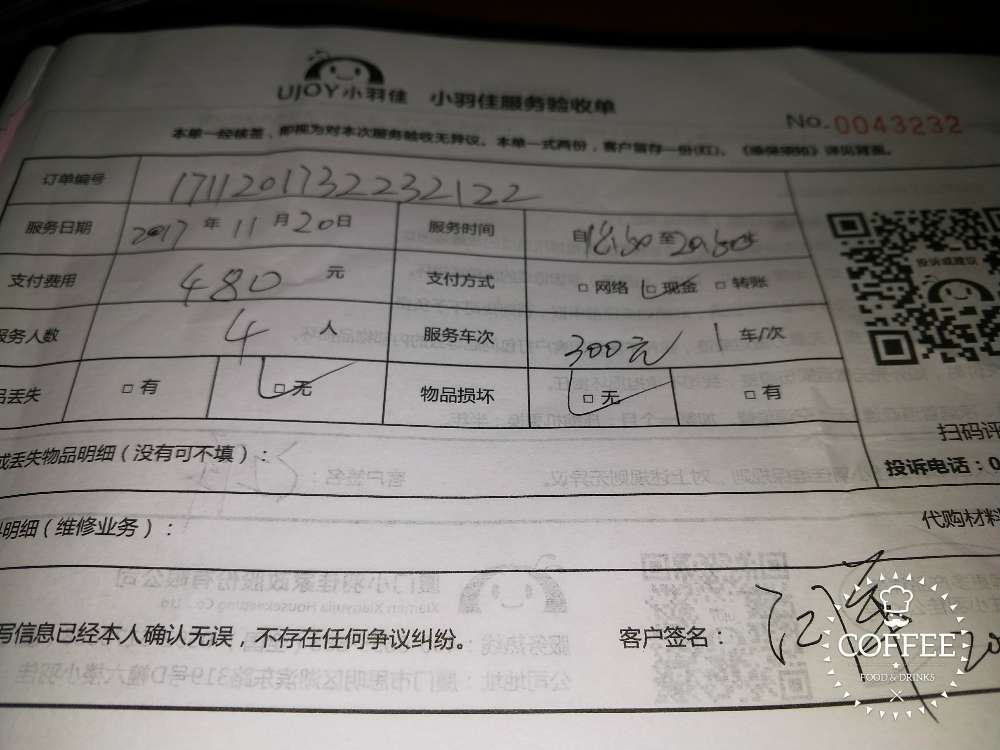 UJOY小羽佳 小羽佳服务验收单
No. 0043232
本单一经核签，即视为对本次服务验收无异议。本单一式两份，客户留存一份(红)。《维保须知》详见背面。
订单编号 1711201732232122
服务日期 2017年11月20日 服务时间 自 至
支付费用 480元 支付方式 □网络 □现金 □转账
服务人数 4人 服务车次 300元 1车/次
品丢失 □有 □无 物品损坏 □无 □有
投诉或建议
扫码评
或丢失物品明细（没有可不填）：
投诉电话：0
明细（维修业务）： 代购材料
写信息已经本人确认无误，不存在任何争议纠纷。 客户签名： 20
COFFEE
FOOD & DRINKS
客户签名：
对上述规则无异议。
厦门小羽佳家政股份有限公司
Xiamen Xiaoyujia Housekeeping Co., Ltd.
服务热线：
公司地址：厦门市思明区湖滨东路319号D幢六楼小羽佳